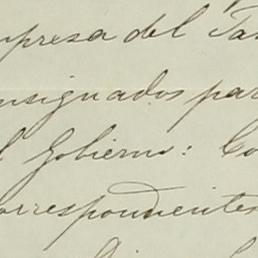 mpresa del Ta
nsignados par
l Gobierno: Co
orrespondientes